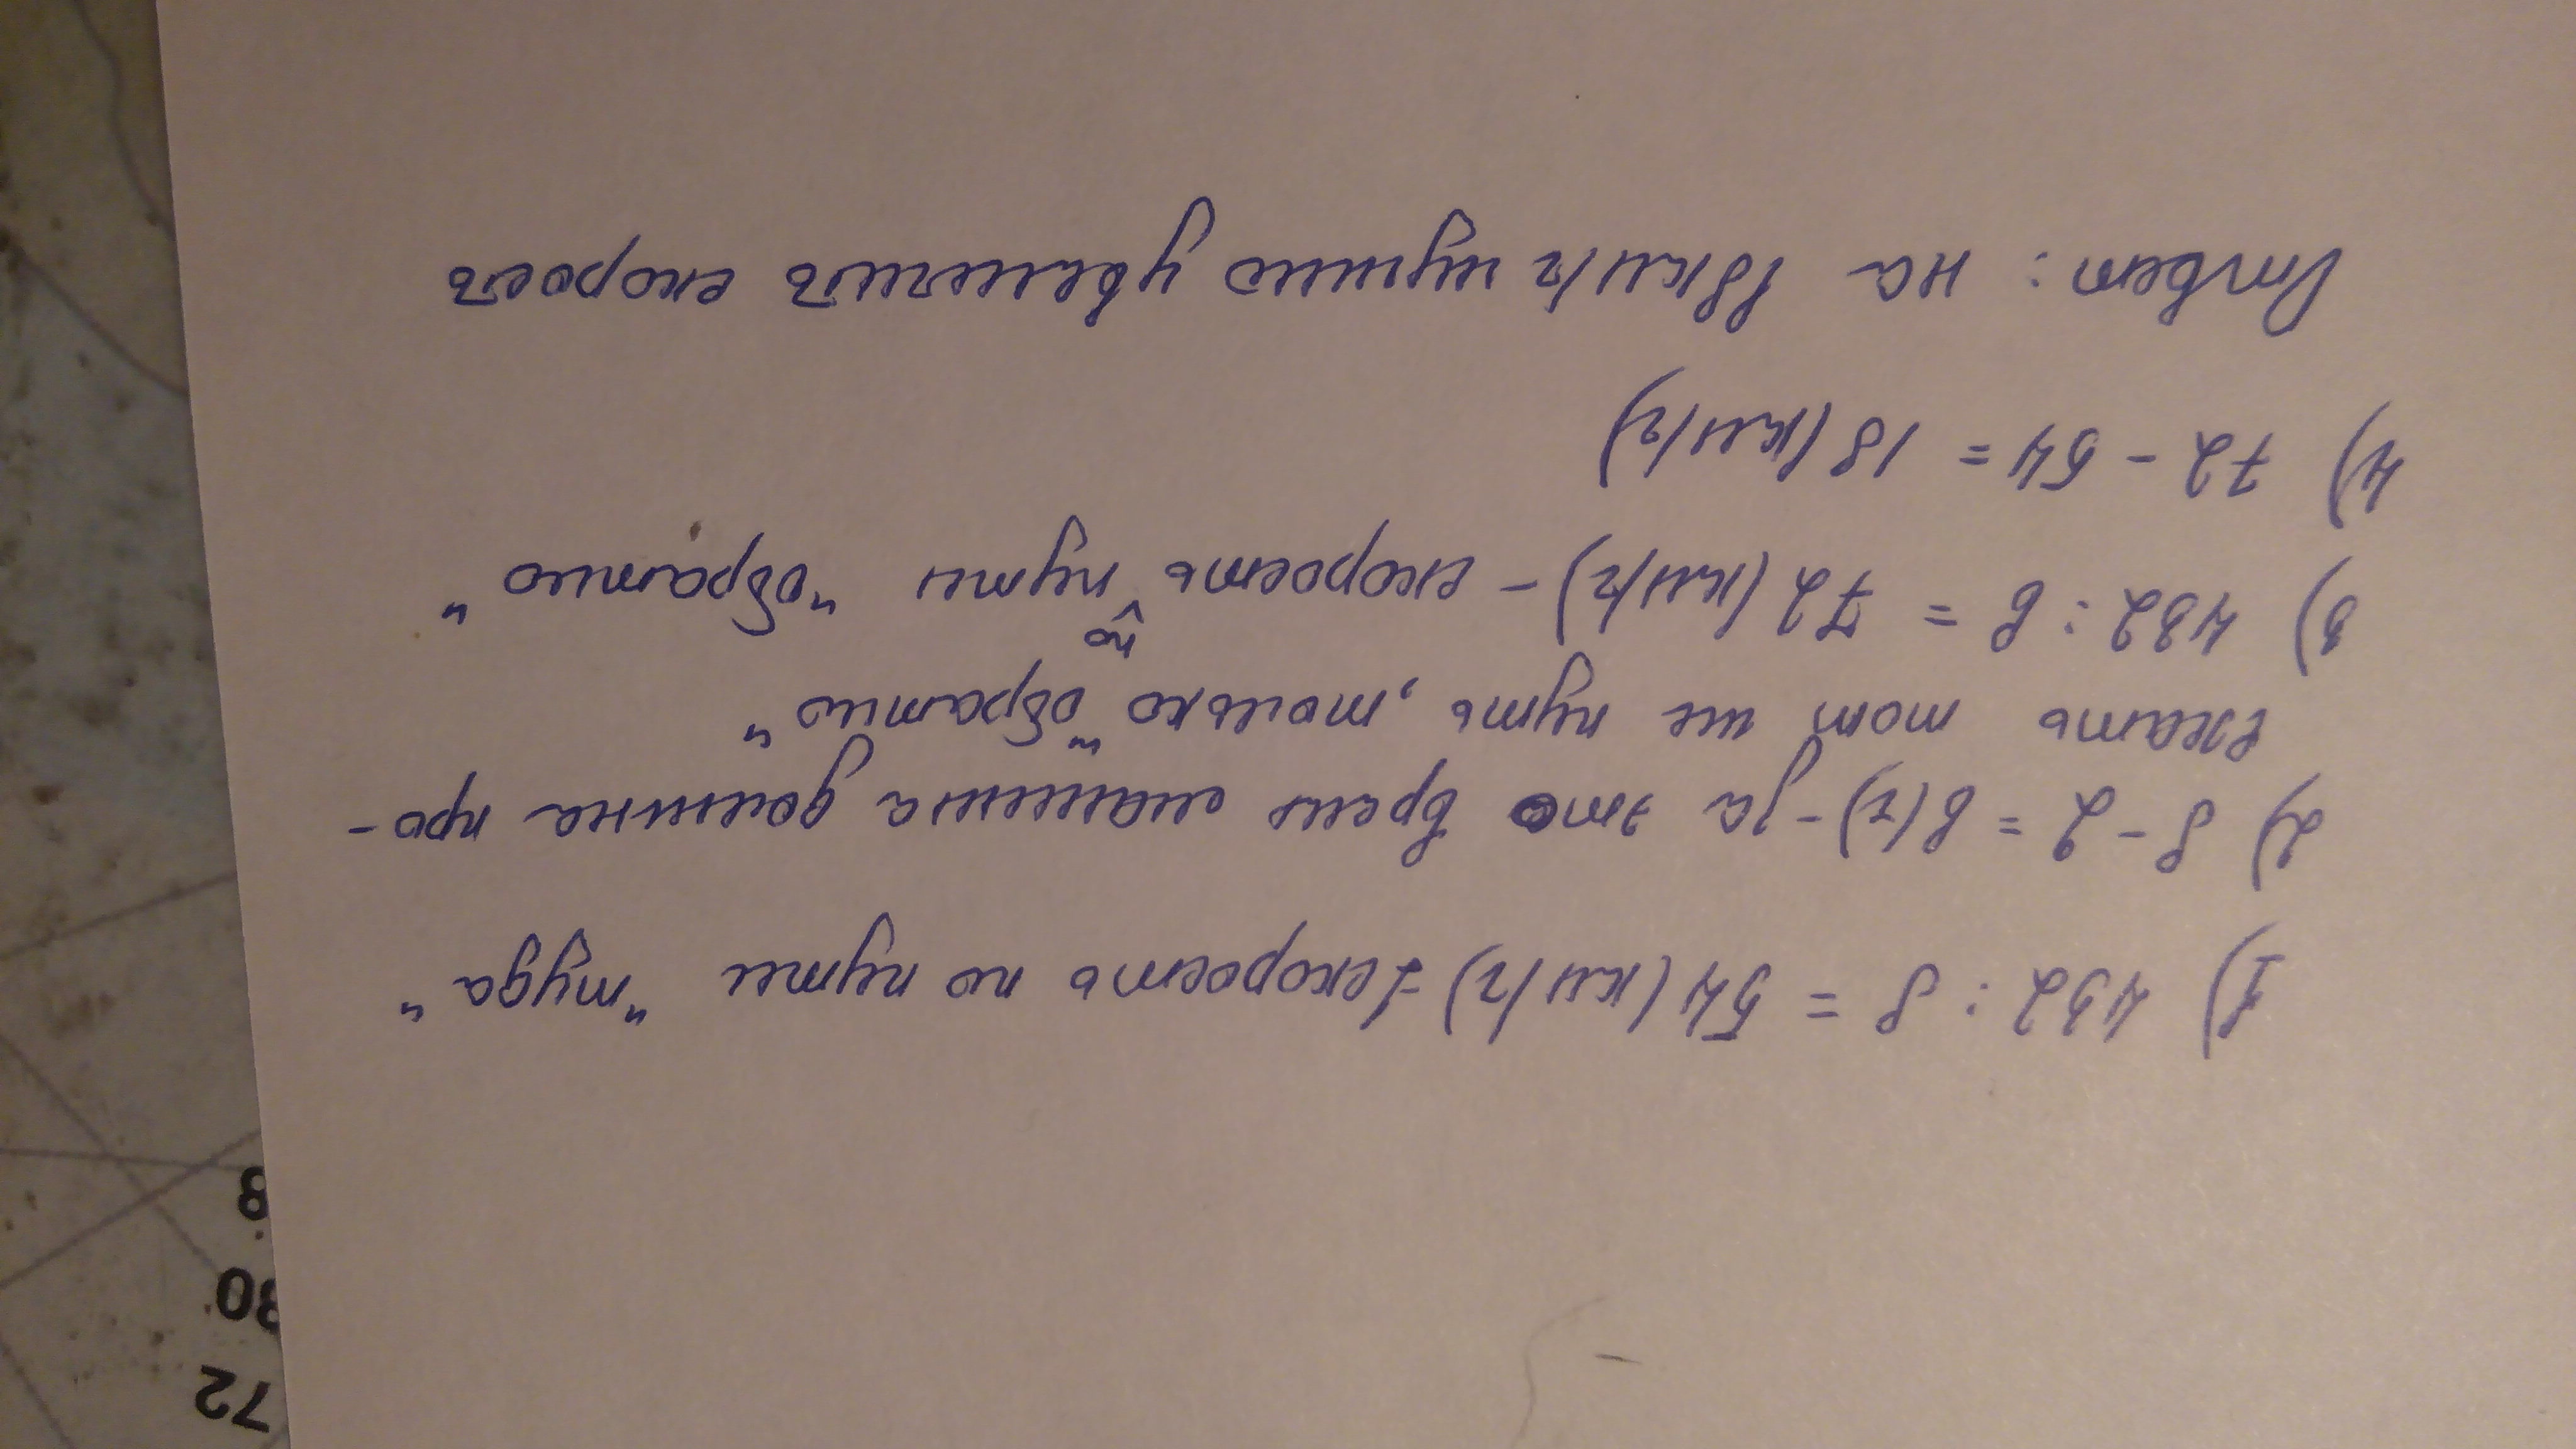 1) 432 : 8 = 54 (км/ч) - скорость по пути "туда"
2) 8 - 2 = 6 (ч) - за это время машина должна про-
ехать тот же путь, только "обратно"
3) 432 : 6 = 72 (км/ч) - скорость по пути "обратно"
4) 72 - 54 = 18 (км/ч)
Ответ: на 18 км/ч нужно увеличить скорость
8.
30.
72